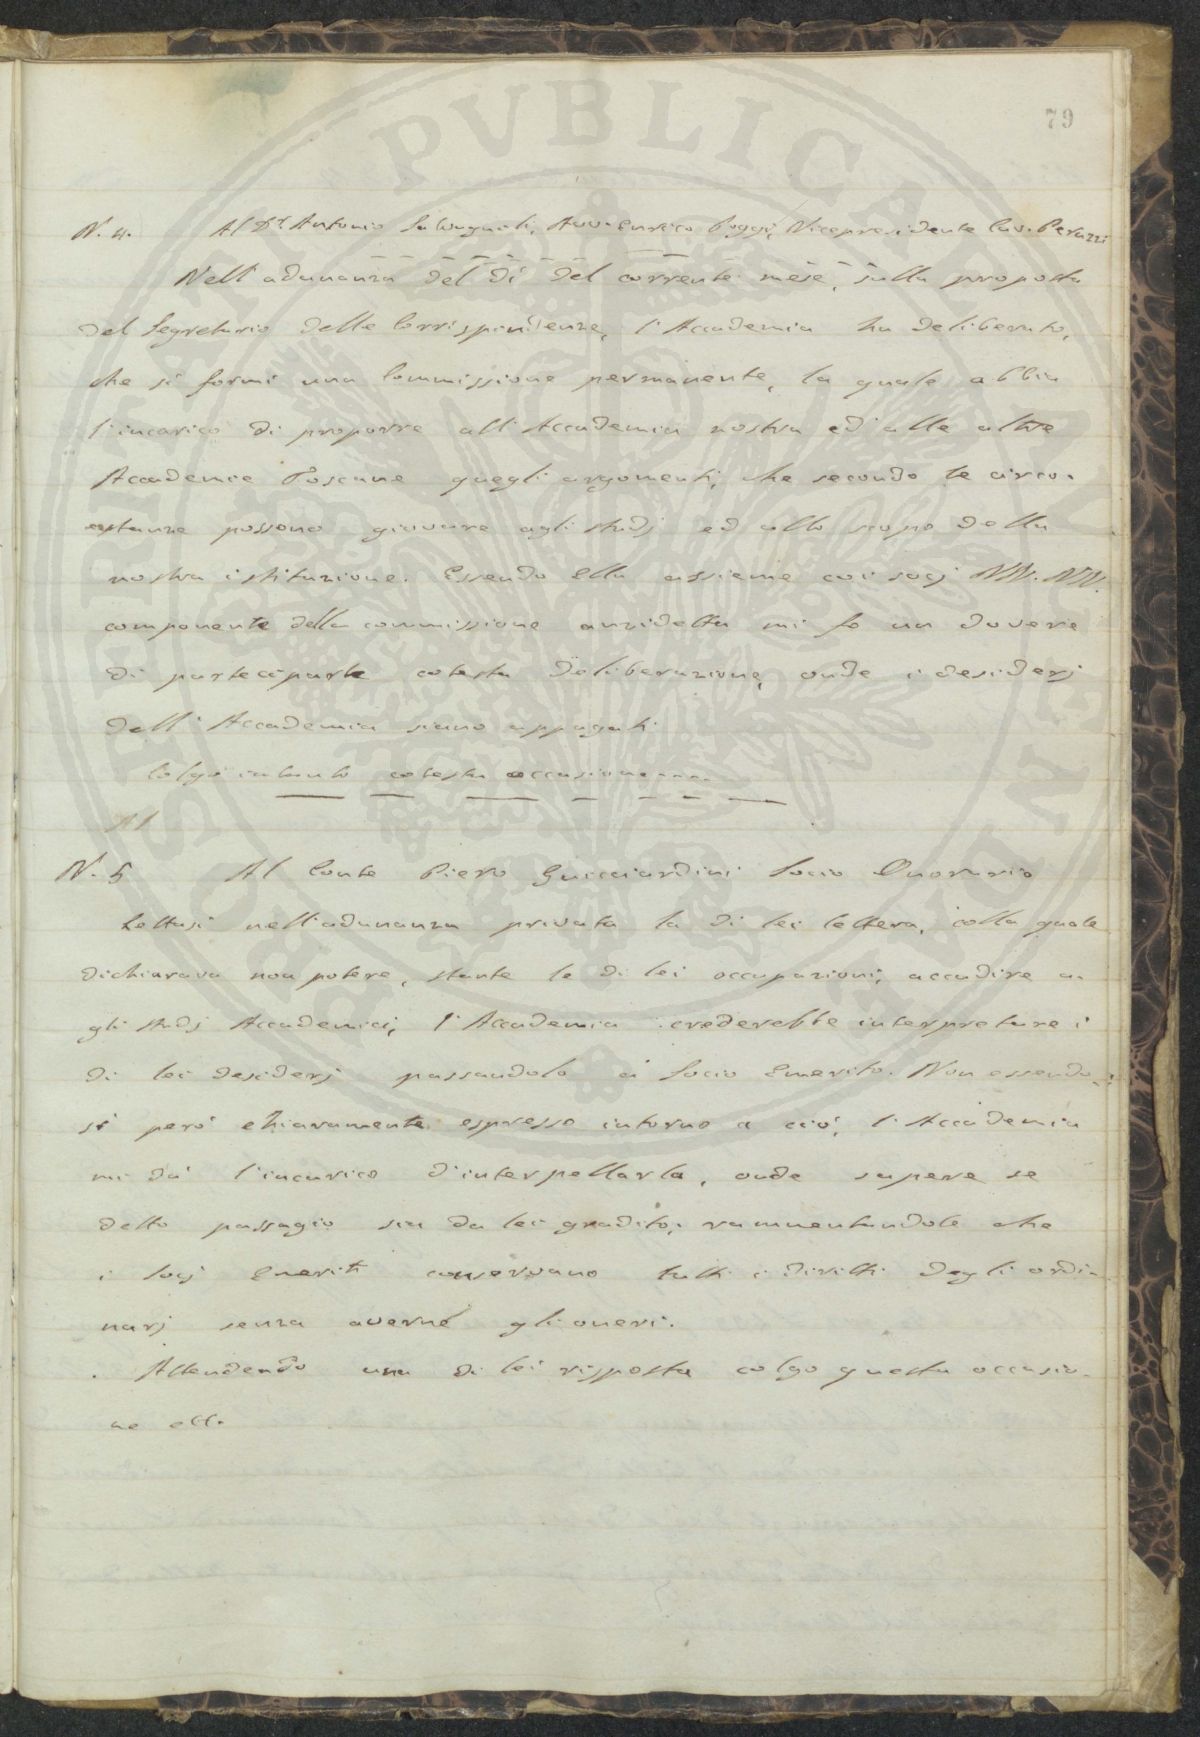 79
N. 4. Al Dr. Antonio Salvagnoli, Avv. Enrico Poggi, Vicepresidente Cav. Peruzzi
Nell'adunanza del dì del corrente mese, sulla proposta
del Segretario delle Corrispondenze, l'Accademia ha deliberato,
che si formi una Commissione permanente, la quale abbia
l'incarico di proporre all'Accademia nostra ed alle altre
Accademie Toscane quegli argomenti, che secondo le circo-
stanze possono giovare agli studj ed allo scopo della
nostra istituzione. Essendo Ella assieme coi socj NN. NN.
componente della commissione anzidetta mi fo un dovere
di partecipare cotesta deliberazione, onde i desiderj
dell'Accademia siano appagati
Colgo intanto cotesta occasione....
N. 5 Al Conte Piero Guicciardini Socio Onorario
Lettasi nell'adunanza privata la di lei lettera, colla quale
dichiarava non potere, stante le di lei occupazioni, accudire a-
gli studj Accademici, l'Accademia crederebbe interpretare i
di lei desiderj passandolo a Socio Emerito. Non essendo-
si però chiaramente espresso intorno a ciò, l'Accademia
mi dà l'incarico d'interpellarla, onde sapere se
detto passagio sia da lei gradito; rammentandole che
i Socj Emeriti conservano tutti i diritti degli ordi-
narj senza averne gli oneri.
Attendendo una di lei risposta colgo questa occasio-
ne ecc.